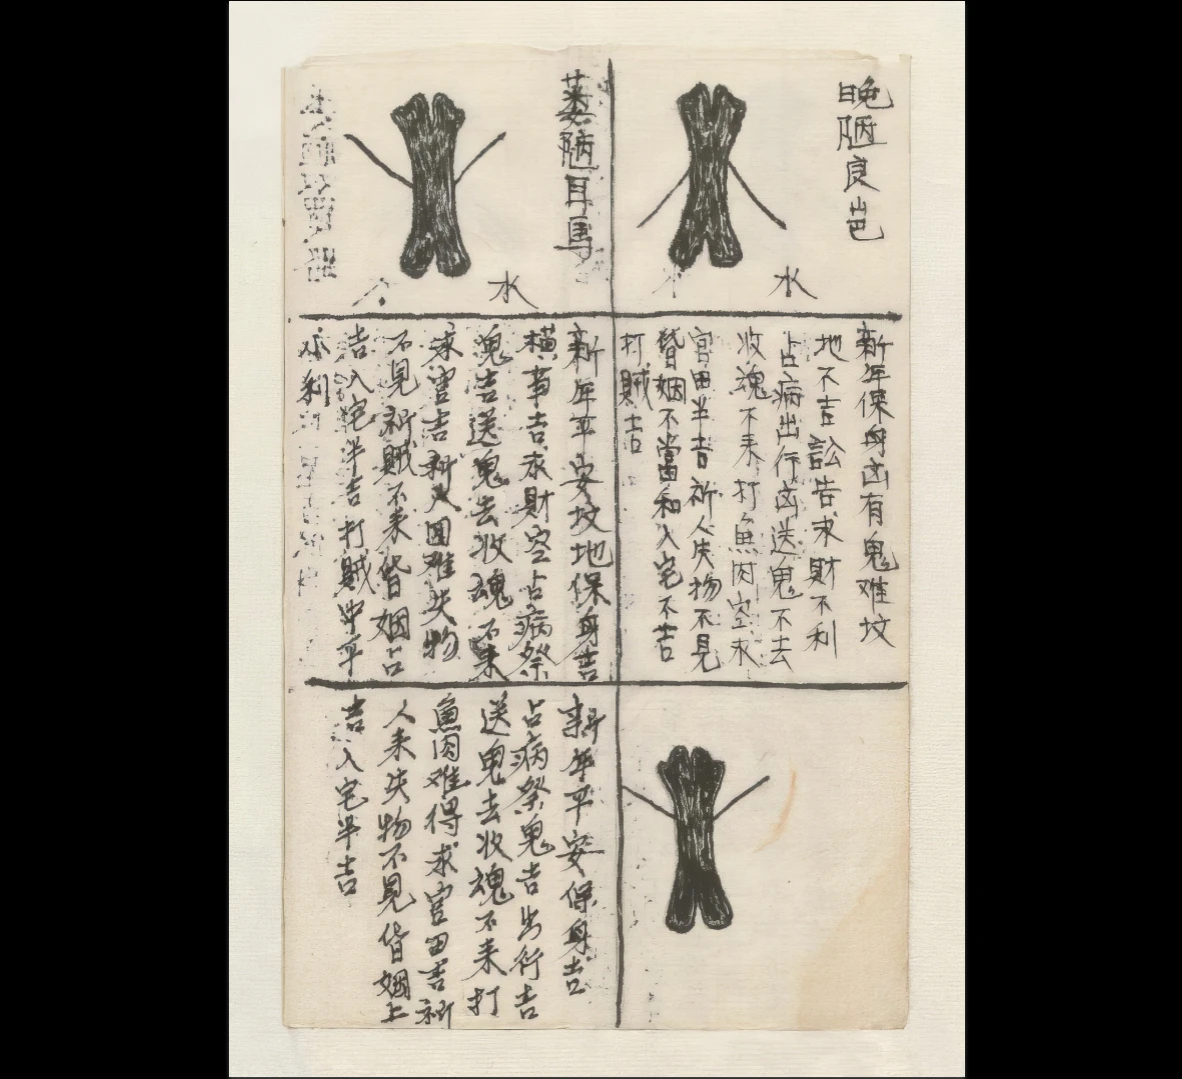 晚陋良岜
水
新年保身凶有鬼难坟
地不吉訟告求財不利
占病出行凶送鬼不去
收魂不來打魚肉空求
官田半吉祈人失物不見
婚姻不當和入宅不吉
打賊吉
陋耳馬
水
新年平安坟地保身吉
橫事吉求財空占病祭
鬼吉送鬼去收魂不來
求官吉祈人回难失物
不見祈賊不來婚姻占
吉入宅半吉打賊中平
不利
新年平安保身吉
占病祭鬼吉出行吉
送鬼去收魂不來打
魚肉难得求官田吉祈
人來失物不見婚姻上
吉入宅半吉